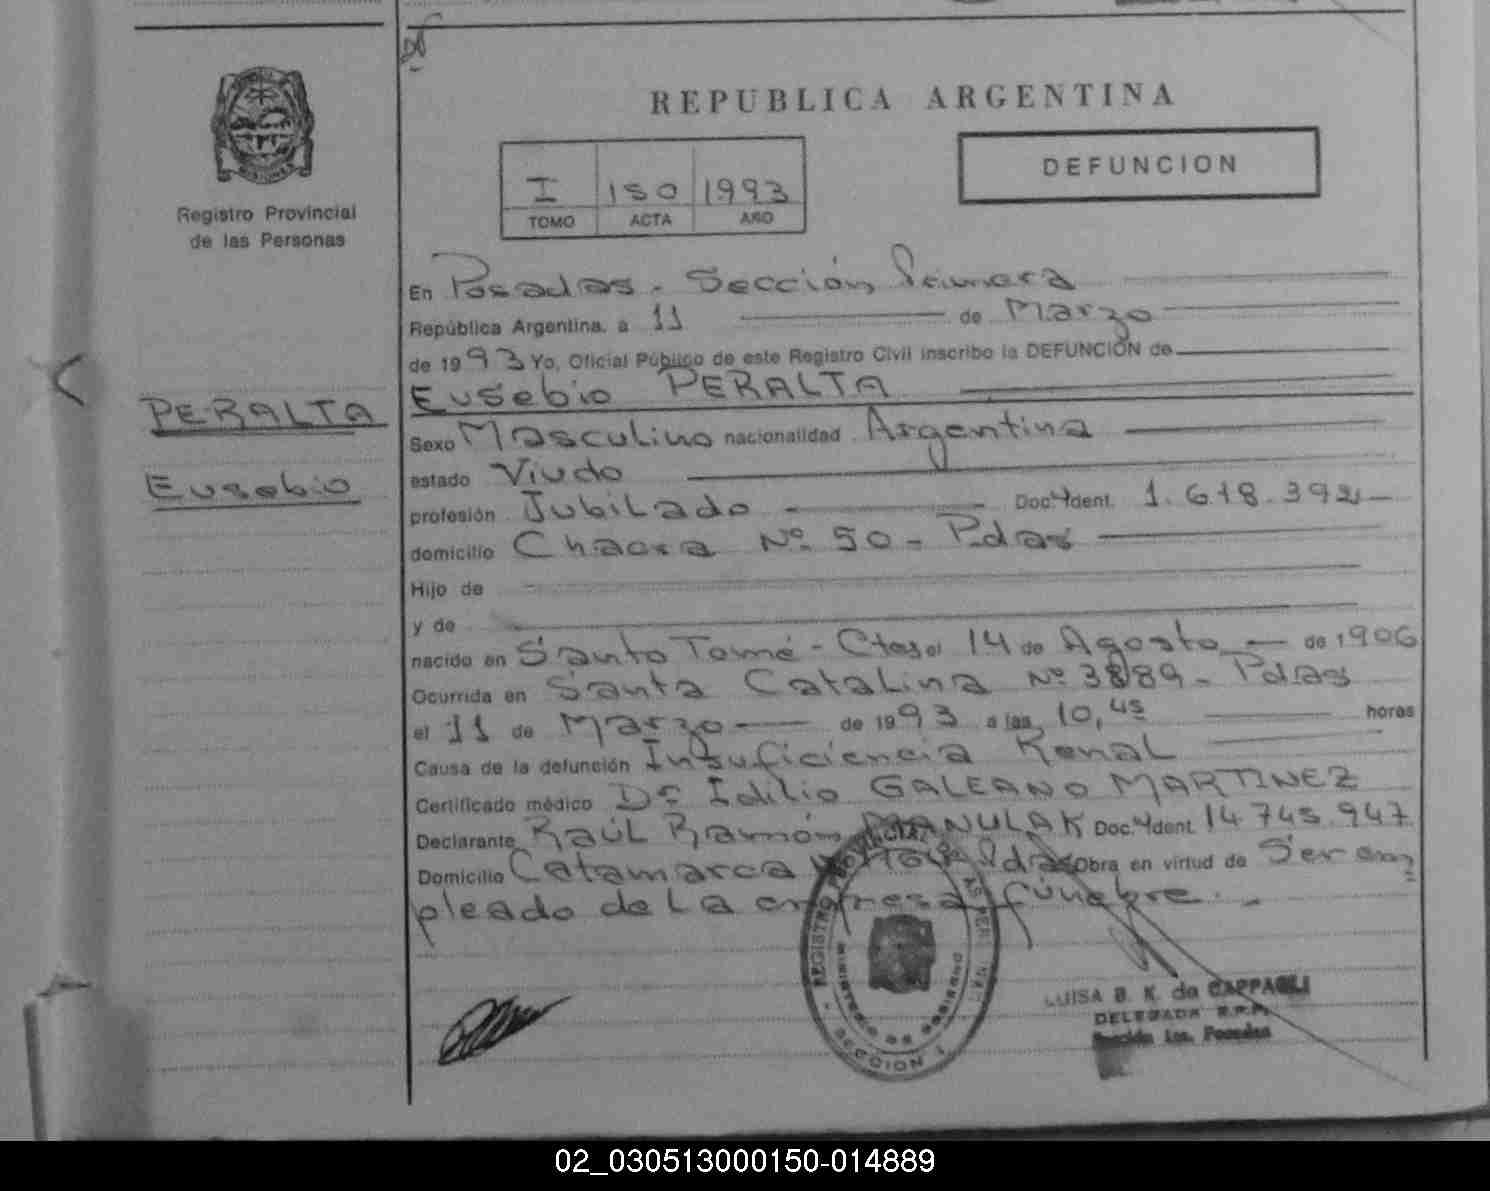 REPUBLICA ARGENTINA
DEFUNCION
I 150 1993
TOMO ACTA AÑO
Registro Provincial
de las Personas
En Posadas - Sección Primera
República Argentina, a 11 de Marzo
de 1993 Yo, Oficial Público de este Registro Civil inscribo la DEFUNCION de
Eusebio PERALTA
PERALTA
Eusebio
Sexo Masculino nacionalidad Argentina
estado Viudo
profesión Jubilado Doc. Ident. 1.618.392
domicilio Chacra Nº 50 - Pdas
Hijo de
y de
nacido en Santo Tomé - Ctes el 14 de Agosto de 1906
Ocurrida en Santa Catalina Nº 3889 - Pdas
el 11 de Marzo de 1993 a las 10,45 horas
Causa de la defunción Insuficiencia Renal
Certificado médico Dr. Idilio GALEANO MARTINEZ
Declarante Raúl Ramón MANULAK Doc. Ident. 14.745.947
Domicilio Catamarca Pdas Obra en virtud de Ser em
pleado de la empresa fúnebre.
REGISTRO PROVINCIAL DE LAS PERSONAS
MINISTERIO DE GOBIERNO
SECCION 1
LUISA B. K. de CAPPAGLI
DELEGADA R.P.P.
Sección 1ra. Posadas
02_030513000150-014889